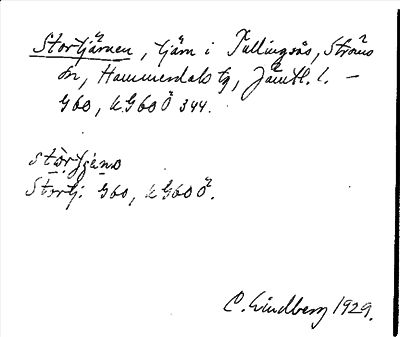 Stortjärnen, tjärn i Tullingsås, Ströms
sn, Hammerdals tg, Jämtl. l. –
G60, kG60Ö 344.
Stortj. G60, kG60Ö.
C. Lindberg 1929.